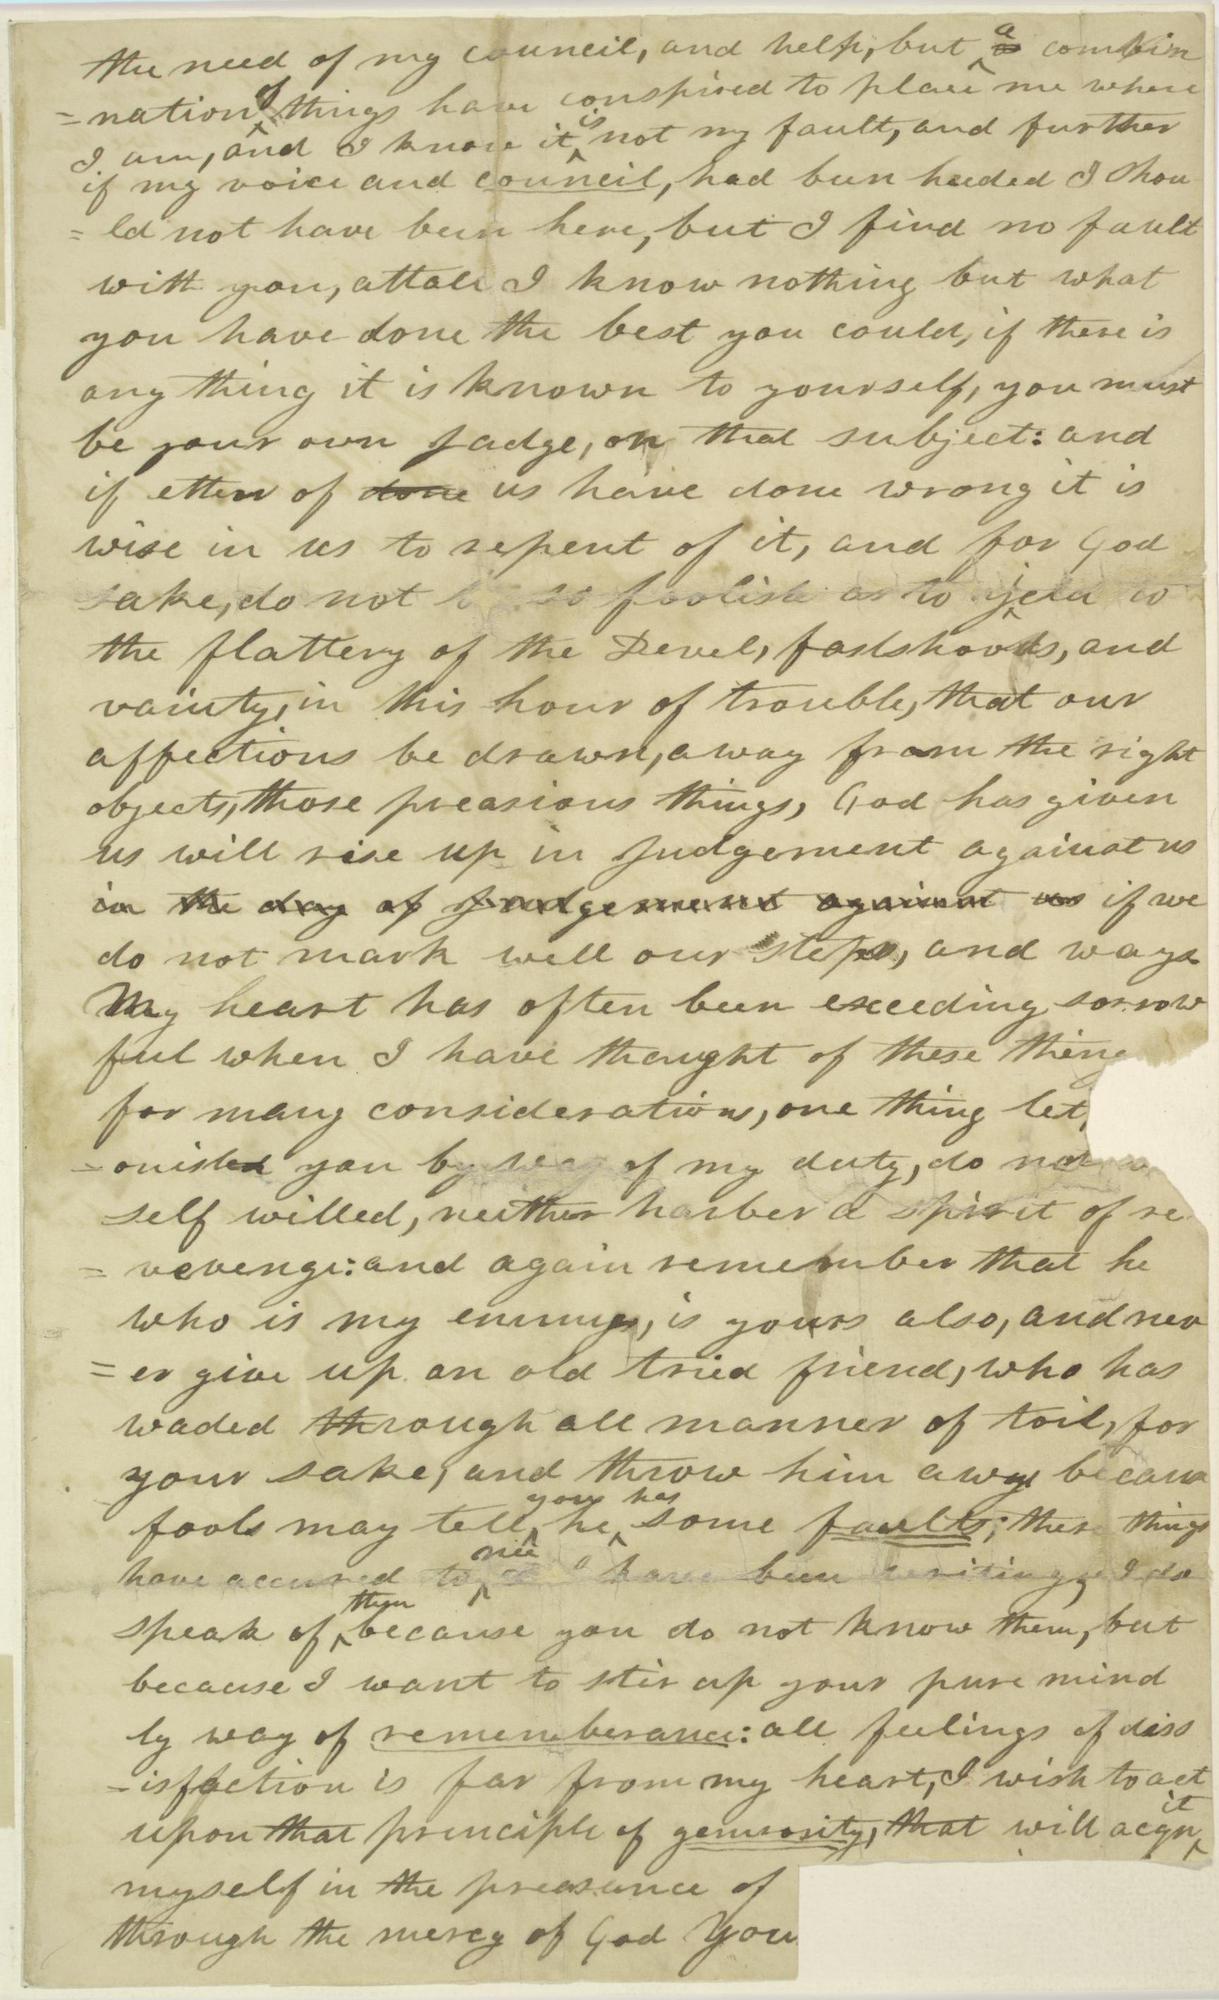 the need of my council, and help, but a combin
=nation of things have conspired to place me where
I am, and I know it is not my fault, and further
if my voice and council, had been heeded I shou
=ld not have been here, but I find no fault
with you, attall I know nothing but what
you have done the best you could, if there is
any thing it is known to yourself, you must
be your own judge, on that subject: and
if ether of done us have done wrong it is
wise in us to repent of it, and for God
sake, do not be so foolish as to yield to
the flattery of the Devel, faslshoods, and
vainty, in this hour of trouble, that our
affections be drawn, away from the right
objects, those preasious things, God has given
us will rise up in judgement against us
in the day of judgement against us if we
do not mark well our steps, and ways
My heart has often been exceeding sorrow
ful when I have thaught of these thing
for many considerations, one thing let,
=onished you by way of my duty, do not
self willed, neither harber a spirit of re
=vevenge: and again remember that he
who is my enmys, is yours also, and nev
=er give up an old tried friend, who has
waded through all manner of toil, for
your sake, and throw him away becau
fools may tell, you he has some faults; these things
have accured to me I have been writing, I do
speak of them because you do not know them, but
because I want to stir up your pure mind
by way of rememberance: all feelings of diss
=isfaction is far from my heart, I wish to act
upon that principle of generosity, that will acqu it
myself in the preasance of
through the mercy of God You